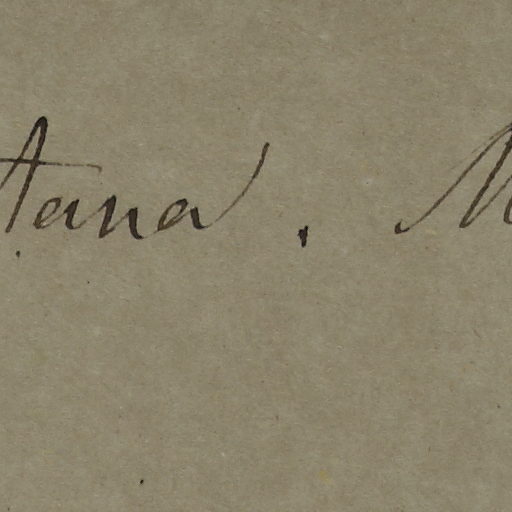 tana. M